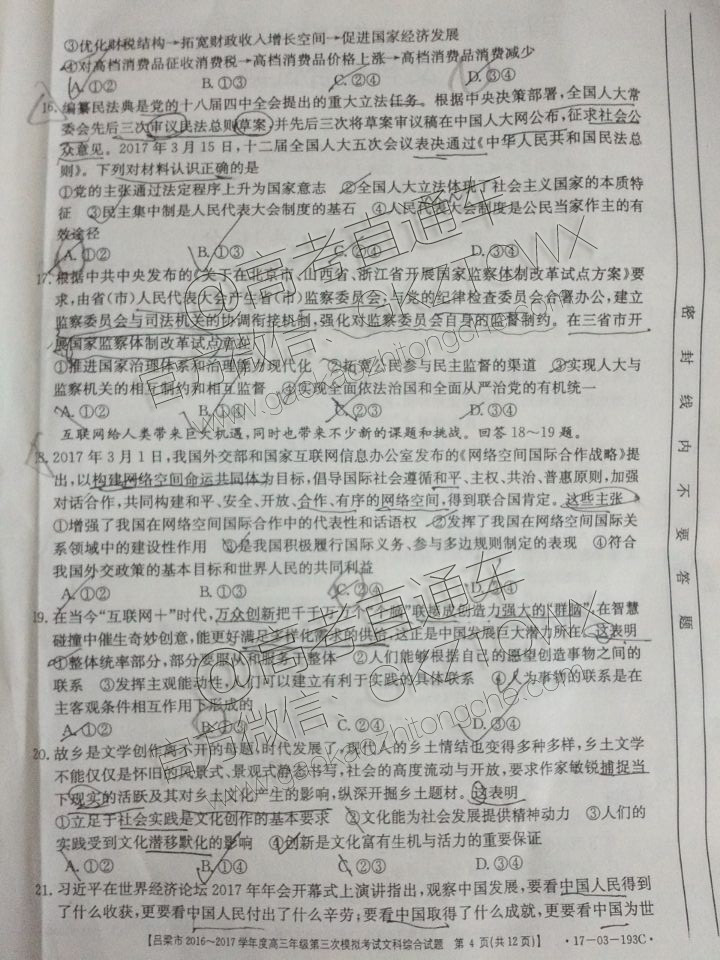 ③优化财税结构→拓宽财政收入增长空间→促进国家经济发展
④对高档消费品征收消费税→高档消费品价格上涨→高档消费品消费减少
A.①② B.①③ C.②④ D.③④
16.编纂民法典是党的十八届四中全会提出的重大立法任务。根据中央决策部署,全国人大常
委会先后三次审议民法总则草案,并先后三次将草案审议稿在中国人大网公布,征求社会公
众意见。2017年3月15日,十二届全国人大五次会议表决通过《中华人民共和国民法总
则》。下列对材料认识正确的是
①党的主张通过法定程序上升为国家意志 ②全国人大立法体现了社会主义国家的本质特
征 ③民主集中制是人民代表大会制度的基石 ④人民代表大会制度是公民当家作主的有
效途径
A.①② B.①③ C.②④ D.③④
17.根据中共中央发布的《关于在北京市、山西省、浙江省开展国家监察体制改革试点方案》要
求,由省(市)人民代表大会产生省(市)监察委员会,与党的纪律检查委员会合署办公,建立
监察委员会与司法机关的协调衔接机制,强化对监察委员会自身的监督制约。在三省市开
展国家监察体制改革试点意在
①推进国家治理体系和治理能力现代化 ②拓宽公民参与民主监督的渠道 ③实现人大与
监察机关的相互制约和相互监督 ④实现全面依法治国和全面从严治党的有机统一
A.①② B.①④ C.②③ D.③④
互联网给人类带来巨大机遇,同时也带来不少新的课题和挑战。回答18~19题。
18.2017年3月1日,我国外交部和国家互联网信息办公室发布的《网络空间国际合作战略》提
出,以构建网络空间命运共同体为目标,倡导国际社会遵循和平、主权、共治、普惠原则,加强
对话合作,共同构建和平、安全、开放、合作、有序的网络空间,得到联合国肯定。这些主张
①增强了我国在网络空间国际合作中的代表性和话语权 ②发挥了我国在网络空间国际关
系领域中的建设性作用 ③是我国积极履行国际义务、参与多边规则制定的表现 ④符合
我国外交政策的基本目标和世界人民的共同利益
A.①② B.①③ C.②④ D.③④
19.在当今“互联网+”时代,万众创新把千千万万个“个脑”联越成创造力强大的“群脑”,在智慧
碰撞中催生奇妙创意,能更好满足多样化需求的供给,这正是中国发展巨大潜力所在。这表明
①整体统率部分,部分要服从和服务于整体 ②人们能够根据自己的愿望创造事物之间的
联系 ③发挥主观能动性,人们可以建立有利于实践的具体联系 ④人为事物的联系是在
主客观条件相互作用下形成的
A.①② B.①③ C.②④ D.③④
20.故乡是文学创作离不开的母题,时代发展了,现代人的乡土情结也变得多种多样,乡土文学
不能仅仅是怀旧的风景式、景观式静态书写,社会的高度流动与开放,要求作家敏锐捕捉当
下现实的活跃及其对乡土文化产生的影响,纵深开掘乡土题材。这表明
①立足于社会实践是文化创作的基本要求 ②文化能为社会发展提供精神动力 ③人们的
实践受到文化潜移默化的影响 ④创新是文化富有生机与活力的重要保证
A.①② B.①④ C.②③ D.③④
21.习近平在世界经济论坛2017年年会开幕式上演讲指出,观察中国发展,要看中国人民得到
了什么收获,更要看中国人民付出了什么辛劳;要看中国取得了什么成就,更要看中国为世
【吕梁市2016~2017学年度高三年级第三次模拟考试文科综合试题 第4页(共12页)】 ·17-03-193C·
密封线内不要答题
@高考直通车
官方微信:GKZTCWX
www.gaokaozhitongche.com
@高考直通车
官方微信:GKZTCWX
www.gaokaozhitongche.com